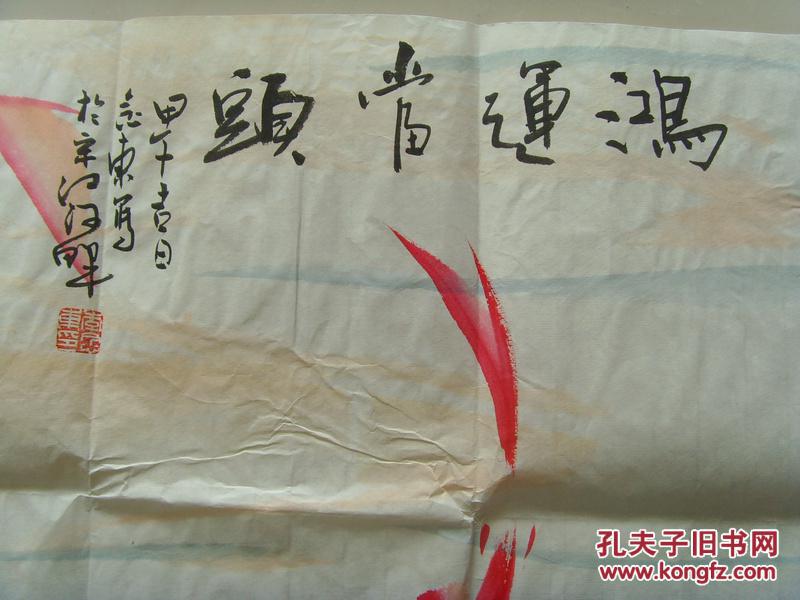 鴻運當頭
甲午吉日
志東寫
於宋江河畔
孔夫子旧书网
www.kongfz.com